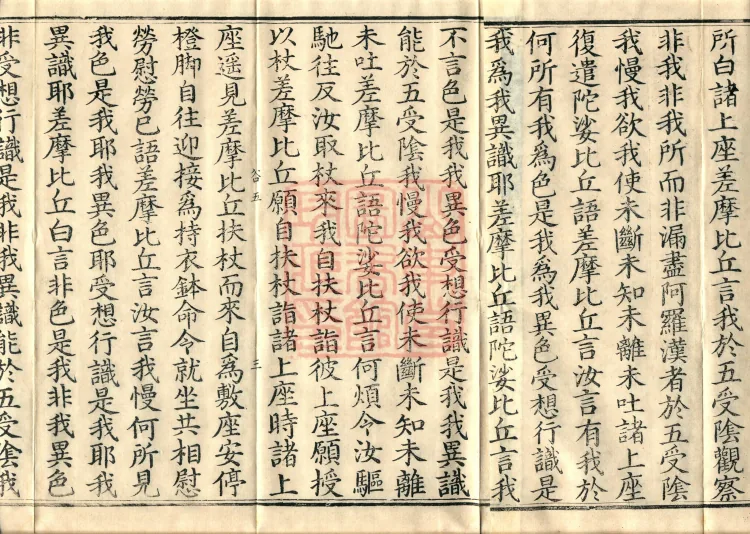 所白諸上座差摩比丘言我於五受陰觀察
非我非我所而非漏盡阿羅漢者於五受陰
我慢我欲我使未斷未知未離未吐諸上座
復遣陀娑比丘語差摩比丘言汝言有我於
何所有我爲色是我爲我異色受想行識是
我爲我異識耶差摩比丘語陀娑比丘言我
不言色是我我異色受想行識是我我異識
能於五受陰我慢我欲我使未斷未知未離
未吐差摩比丘語陀娑比丘言何煩令汝驅
馳往反汝取杖來我自扶杖詣彼上座願授
以杖差摩比丘願自扶杖詣諸上座時諸上
谷五 三
座遥見差摩比丘扶杖而來自爲敷座安停
橙脚自往迎接爲持衣鉢命令就坐共相慰
勞慰勞已語差摩比丘言汝言我慢何所見
我色是我耶我異色耶受想行識是我耶我
異識耶差摩比丘白言非色是我非我異色
非受想行識是我非我異識能於五受陰我